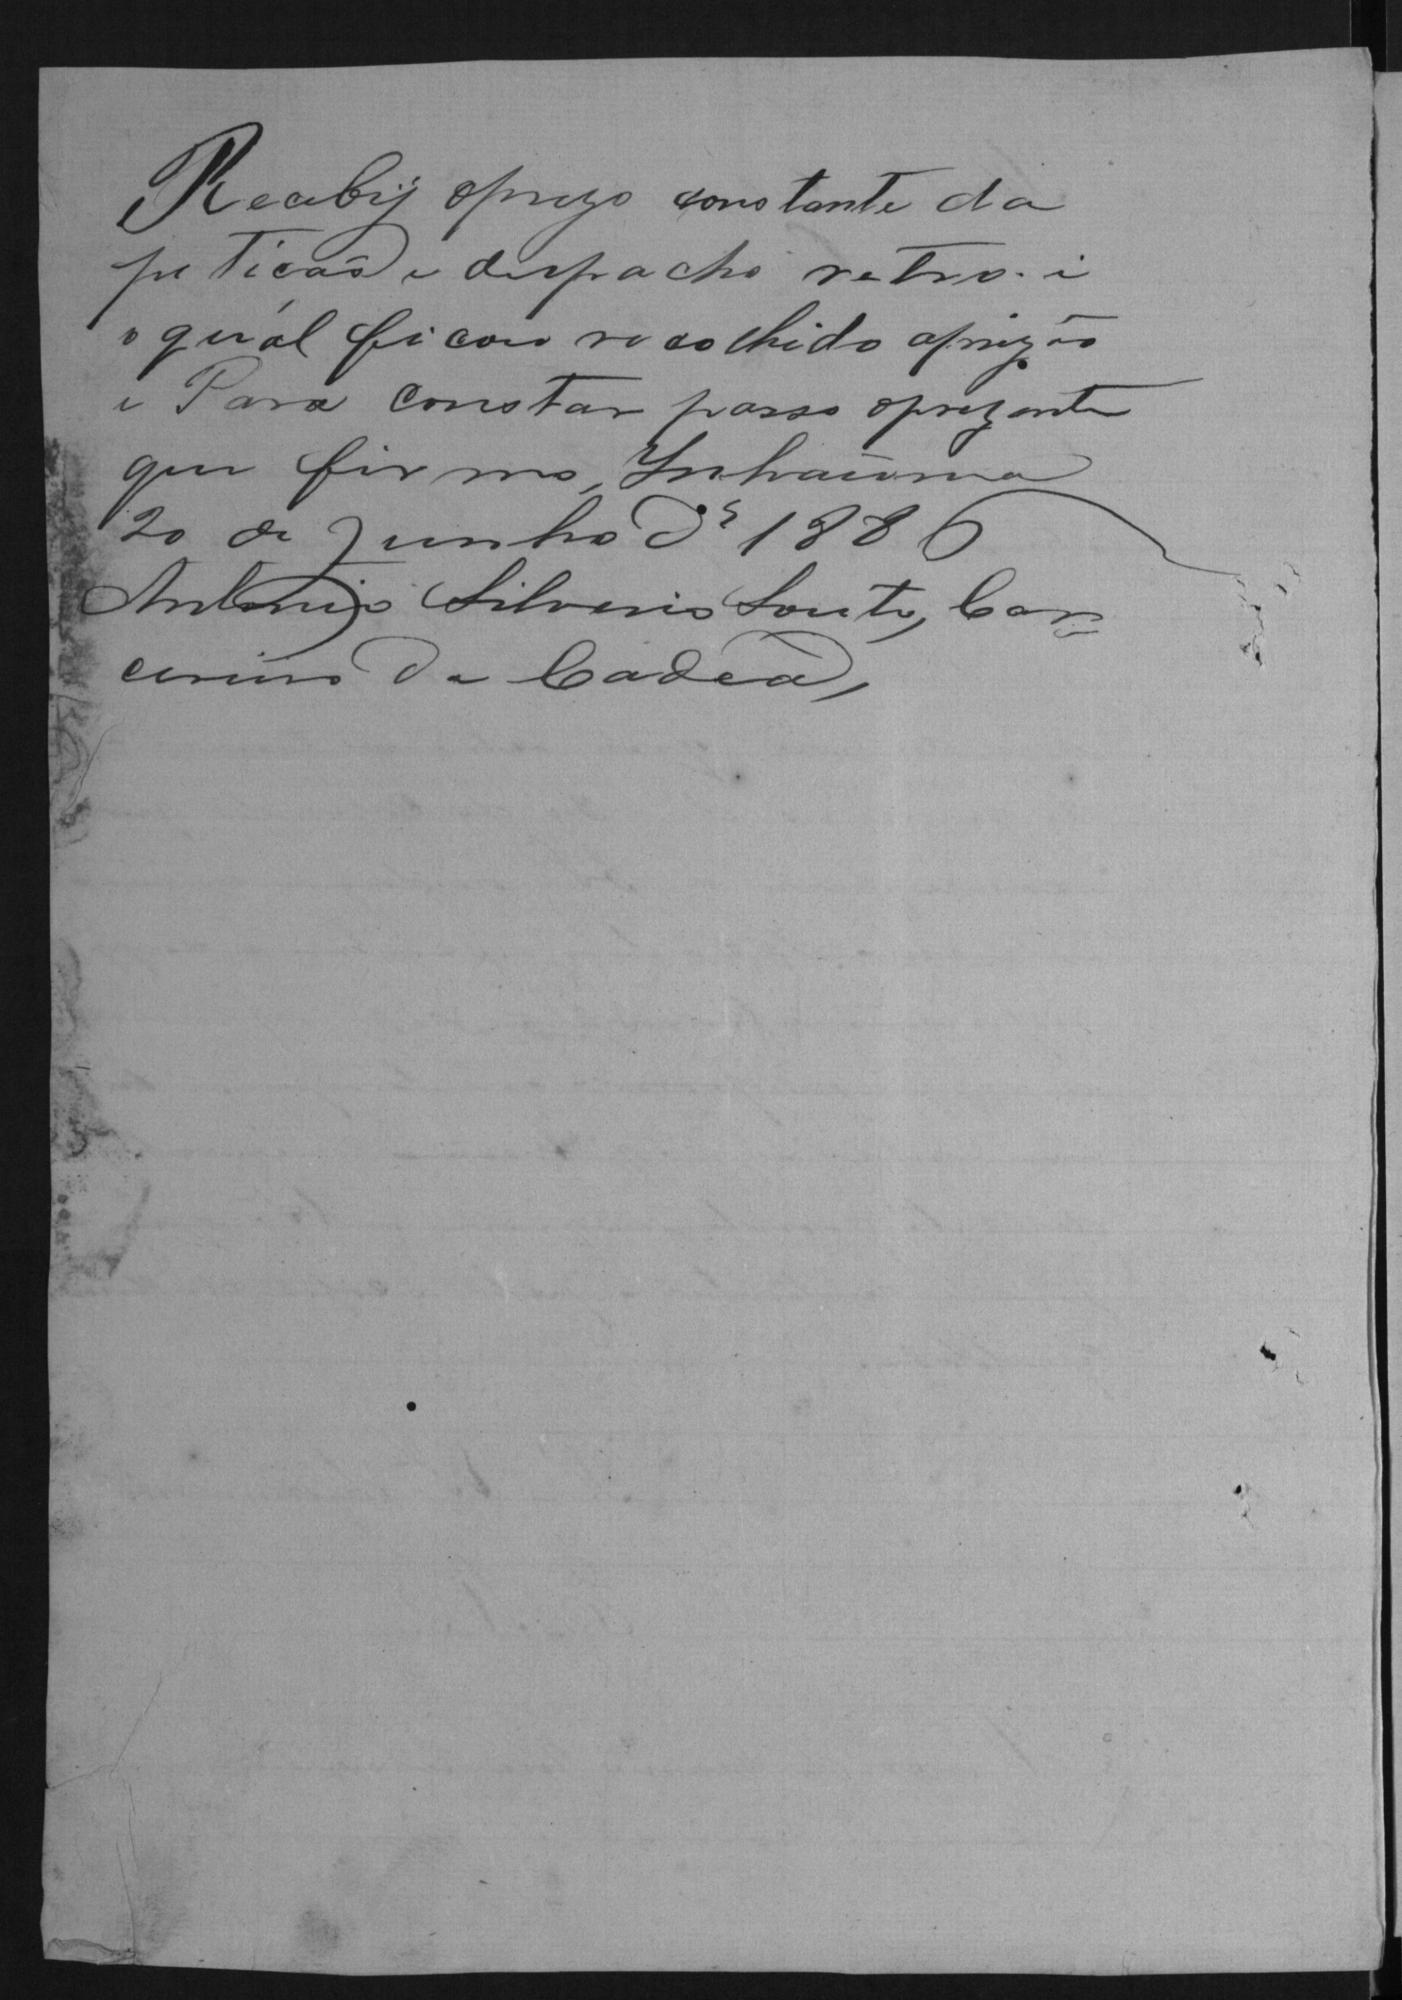 Recebij oprezo constante da
peticaõ e despacho retro. i
o quál ficou recolhido aprizão
e Para constar passo oprezente
que firmo, Inhaúma
20 de Junho de 1886
Antonio Silverio Souto, Car=
cereiro da Cadea,